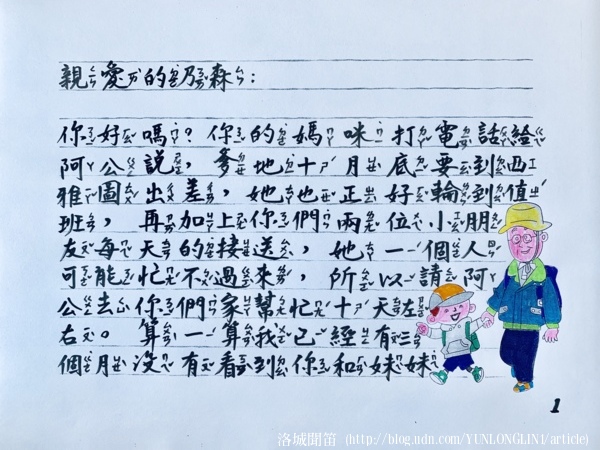 親愛的乃森：
你好嗎？你的媽咪打電話給
阿公說，爹地十月底要到西
雅圖出差，她也正好輪到值
班，再加上你們兩位小朋
友每天的接送，她一個人
可能忙不過來，所以請阿
公去你們家幫忙十天左
右。算一算我已經有三
個月沒有看到你和妹妹
1
洛城聞笛 (http://blog.udn.com/YUNLONGLIN1/article)